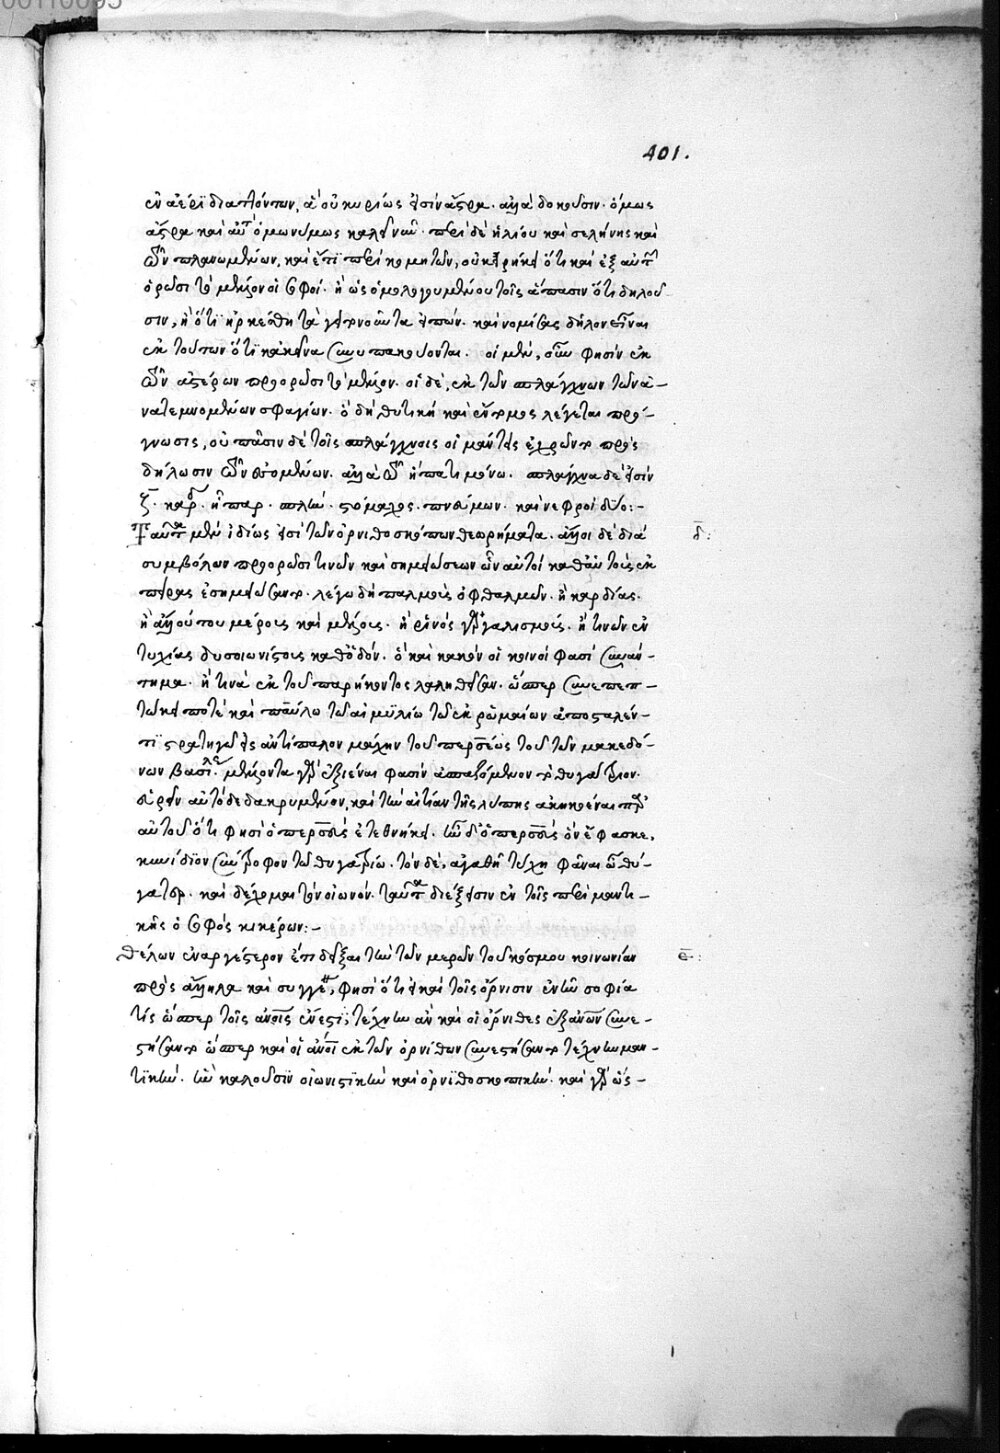 00110095
401.
ἐν ἀέρι διαπλόντων, ἃ οὐ κυρίως εἰσὶν ἄστρα. ἀλλὰ δοκοῦσιν. ὅμως
ἄστρα καὶ αὐτὰ ὁμωνύμως καλεῖν. περὶ δὲ ἡλίου καὶ σελήνης καὶ
τῶν πλανωμένων, καὶ ἔτι περὶ κομητῶν, οὐκ εἴρηκεν ὅτι καὶ ἐξ αὐτῶν
ὁρῶσι τὸ μέλλον οἱ σοφοί. ἢ ὡς ὁμολογουμένου τοῖς ἅπασιν ὅτι δηλοῦ
σιν, ἢ ὅτι ἠρκέσθη τὰ εἰπεῖν. καὶ νομίσας δῆλον εἶναι
ἐκ τούτων ὅτι κἀκεῖνα συνυπακούονται. οἱ μὲν, φησὶν ἐκ
τῶν ἀστέρων προορῶσι τὸ μέλλον. οἱ δὲ, ἐκ τῶν σπλάγχνων τῶν ἀ-
νατεμνομένων σφαγίων. ὃ δὴ θυτικὴ καὶ λέγεται πρό-
γνωσις, οὐ πᾶσιν δὲ τοῖς σπλάγχνοις οἱ μάντεις ἐχρῶντο πρὸς
δήλωσιν τῶν ἑπομένων. ἀλλὰ τῶ ἥπατι μόνω. σπλάγχνα δὲ εἰσὶν
ζ. καρδ. ἧπαρ. σπλήν. στόμαχος. πνεύμων. καὶ νεφροὶ δύο:-
Ταῦτα μὲν ἰδίως εἰσὶ τῶν ὀρνιθοσκόπων θεωρήματα. ἄλλοι δὲ διὰ δ̄:
συμβόλων προορῶσι τινῶν καὶ σημειώσεων ὧν αὐτοὶ καθ᾽ αὑτοὺς ἐκ
πείρας ἐσημειώσαντο. λέγω δὴ παλμοὺς ὀφθαλμῶν. ἢ καρδίας.
ἢ ἄλλου του μέρους καὶ μέλους. ἢ ῥινὸς γαργαλισμούς. ἢ τινῶν ἐν
τυχίας δυσοιωνίστους καθ᾽ ὁδόν. ὃ καὶ κακὸν οἱ κοινοὶ φασὶ συνάν-
τημα. ἢ τινὰ ἐκ τοῦ παρήκοντος λαληθεῖσαν. ὥσπερ συνεπεπ-
τώκει ποτὲ καὶ παύλω τῶ αἰμυλίω τῶ ἐκ ῥωμαίων ἀποσταλέν-
τι στρατηγῶ εἰς ἀντίπαλον μάχην τοῦ περσέως τοῦ τῶν μακεδό-
νων βασιλέως. μέλλοντα γὰρ ἐξιέναι φασὶν ἀσπαζόμενον τὸ θυγάτριον.
εὑρεῖν αὐτὸ δεδακρυμένον, καὶ τὴν αἰτίαν τῆς λύπης ἀκηκοέναι παρ᾽
αὐτοῦ ὅτι φησὶ ὁ περσεὺς ἐτεθνήκει. ἦν δ᾽ ὁ περσεὺς ὃν ἔφασκε,
κυνίδιον σύντροφον τῶ θυγατρίω. τὸν δὲ, ἀγαθῆ τύχη φάναι ὦ θύ-
γατερ. καὶ δέχομαι τὸν οἰωνόν. ταῦτα διέξεισιν ἐν τοῖς περὶ μαντι-
κῆς ὁ σοφὸς κικέρων:-
Θέλων ἐναργέστερον ἐπιδεῖξαι τὴν τῶν μερῶν τοῦ κόσμου κοινωνίαν ε̄:
πρὸς ἄλληλα καὶ συγγένειαν, φησὶ ὅτι εἰ καὶ τοῖς ὄρνισιν ἐνῆν σοφία
τις ὥσπερ τοῖς ἀνοις ἔνεστι, τέχνην ἂν καὶ οἱ ὄρνιθες ἐξ ἀνων συνε-
στήσαντο ὥσπερ καὶ οἱ ἀνοι ἐκ τῶν ὀρνίθων συνεστήσαντο τέχνην μαν-
τικήν. ἣν καλοῦσιν οἰωνιστικὴν καὶ ὀρνιθοσκοπικήν. καὶ γὰρ ὡς-